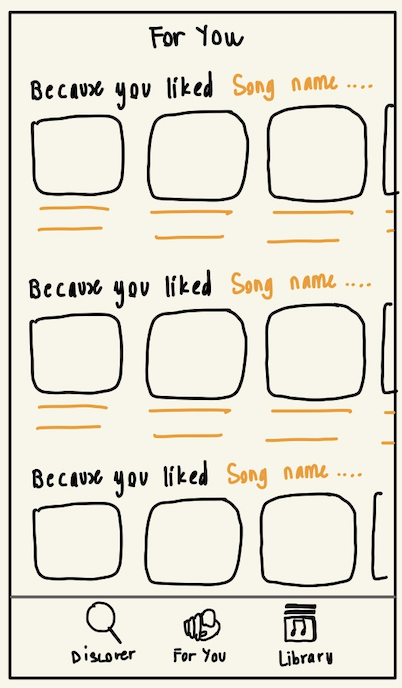 For You
Because you liked Song name ....
Because you liked Song name ....
Because you liked Song name ....
Discover For You Library